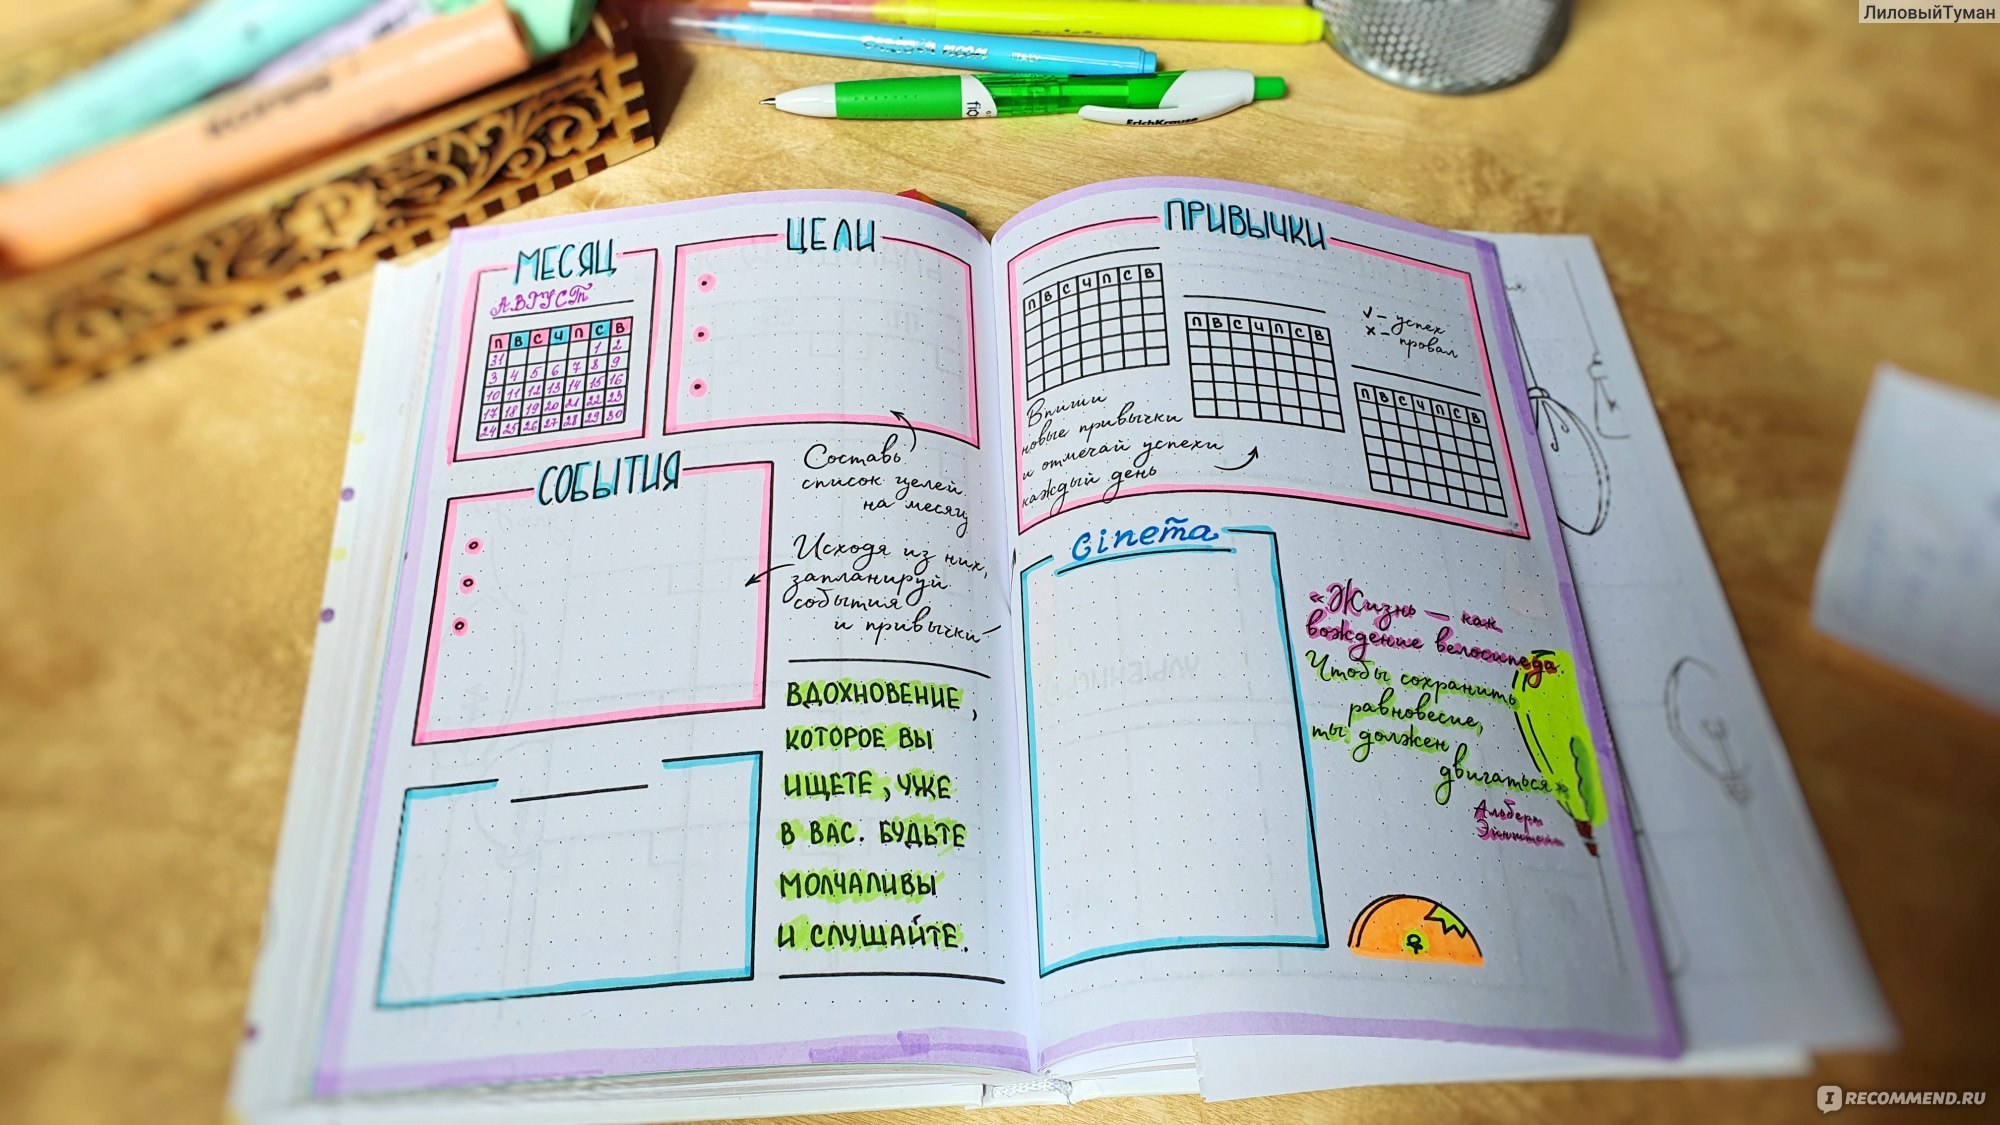 ЛиловыйТуман
ErichKrause
МЕСЯЦ
АВГУСТ
П В С Ч П С В
1 2
31
3 4 5 6 7 8 9
10 11 12 13 14 15 16
17 18 19 20 21 22 23
24 25 26 27 28 29 30
ЦЕЛИ
Составь
список целей
на месяц
СОБЫТИЯ
Исходя из них,
запланируй
события
и привычки
ВДОХНОВЕНИЕ,
КОТОРОЕ ВЫ
ИЩЕТЕ, УЖЕ
В ВАС. БУДЬТЕ
МОЛЧАЛИВЫ
И СЛУШАЙТЕ.
ПРИВЫЧКИ
П В С Ч П С В
П В С Ч П С В
v – успех
x – провал
П В С Ч П С В
Впиши
новые привычки
и отмечай успехи
каждый день
Cinema
«Жизнь – как
вождение велосипеда.
Чтобы сохранить
равновесие,
ты должен
двигаться»
Альберт
Эйнштейн
I RECOMMEND.RU